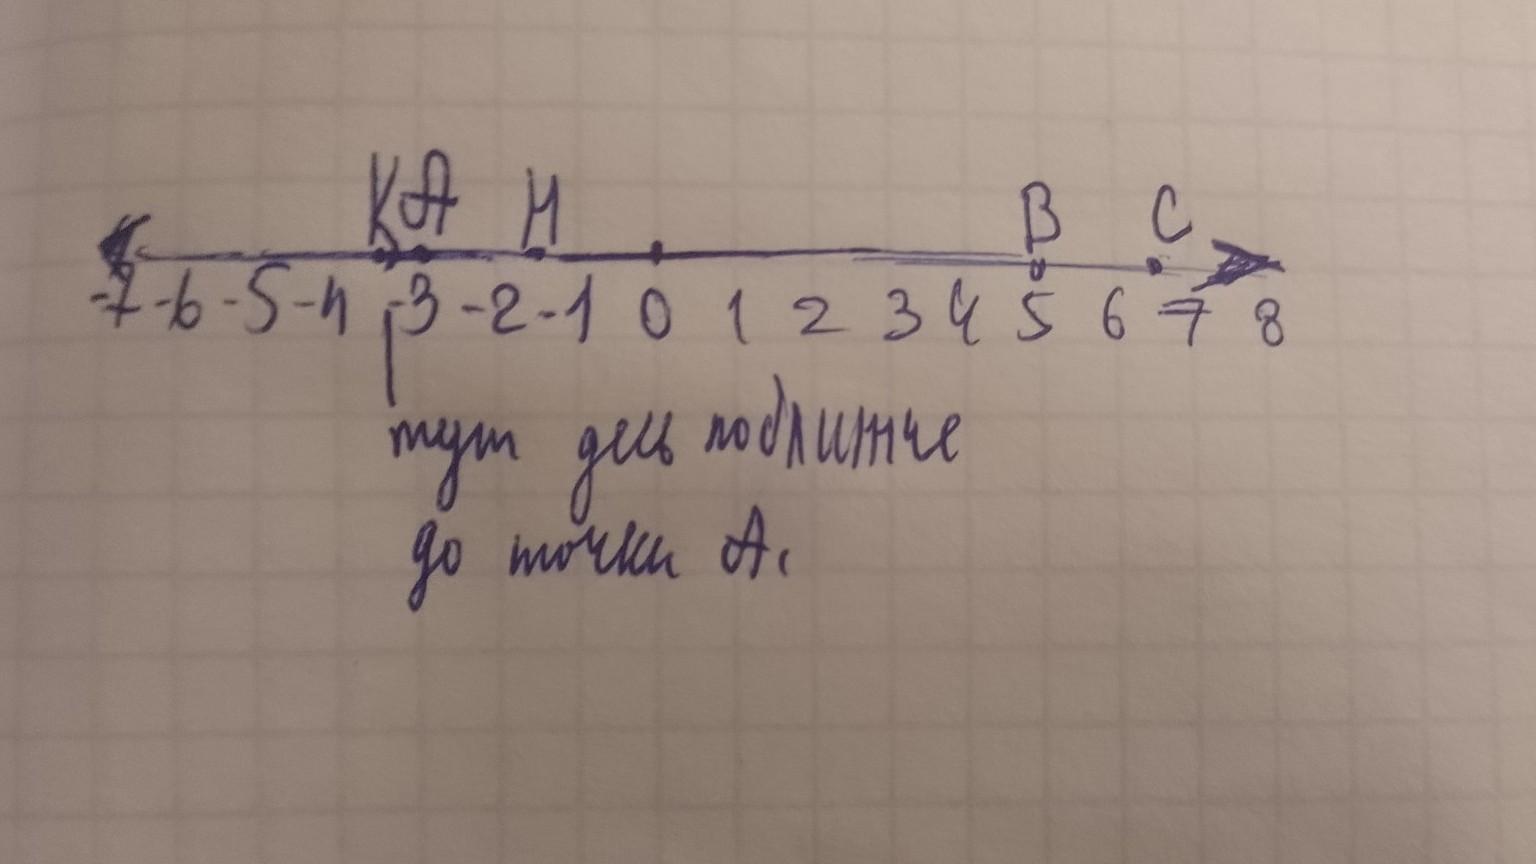 К А М В С
-7 -6 -5 -4 -3 -2 -1 0 1 2 3 4 5 6 7 8
тут десь поближче
до точки А.